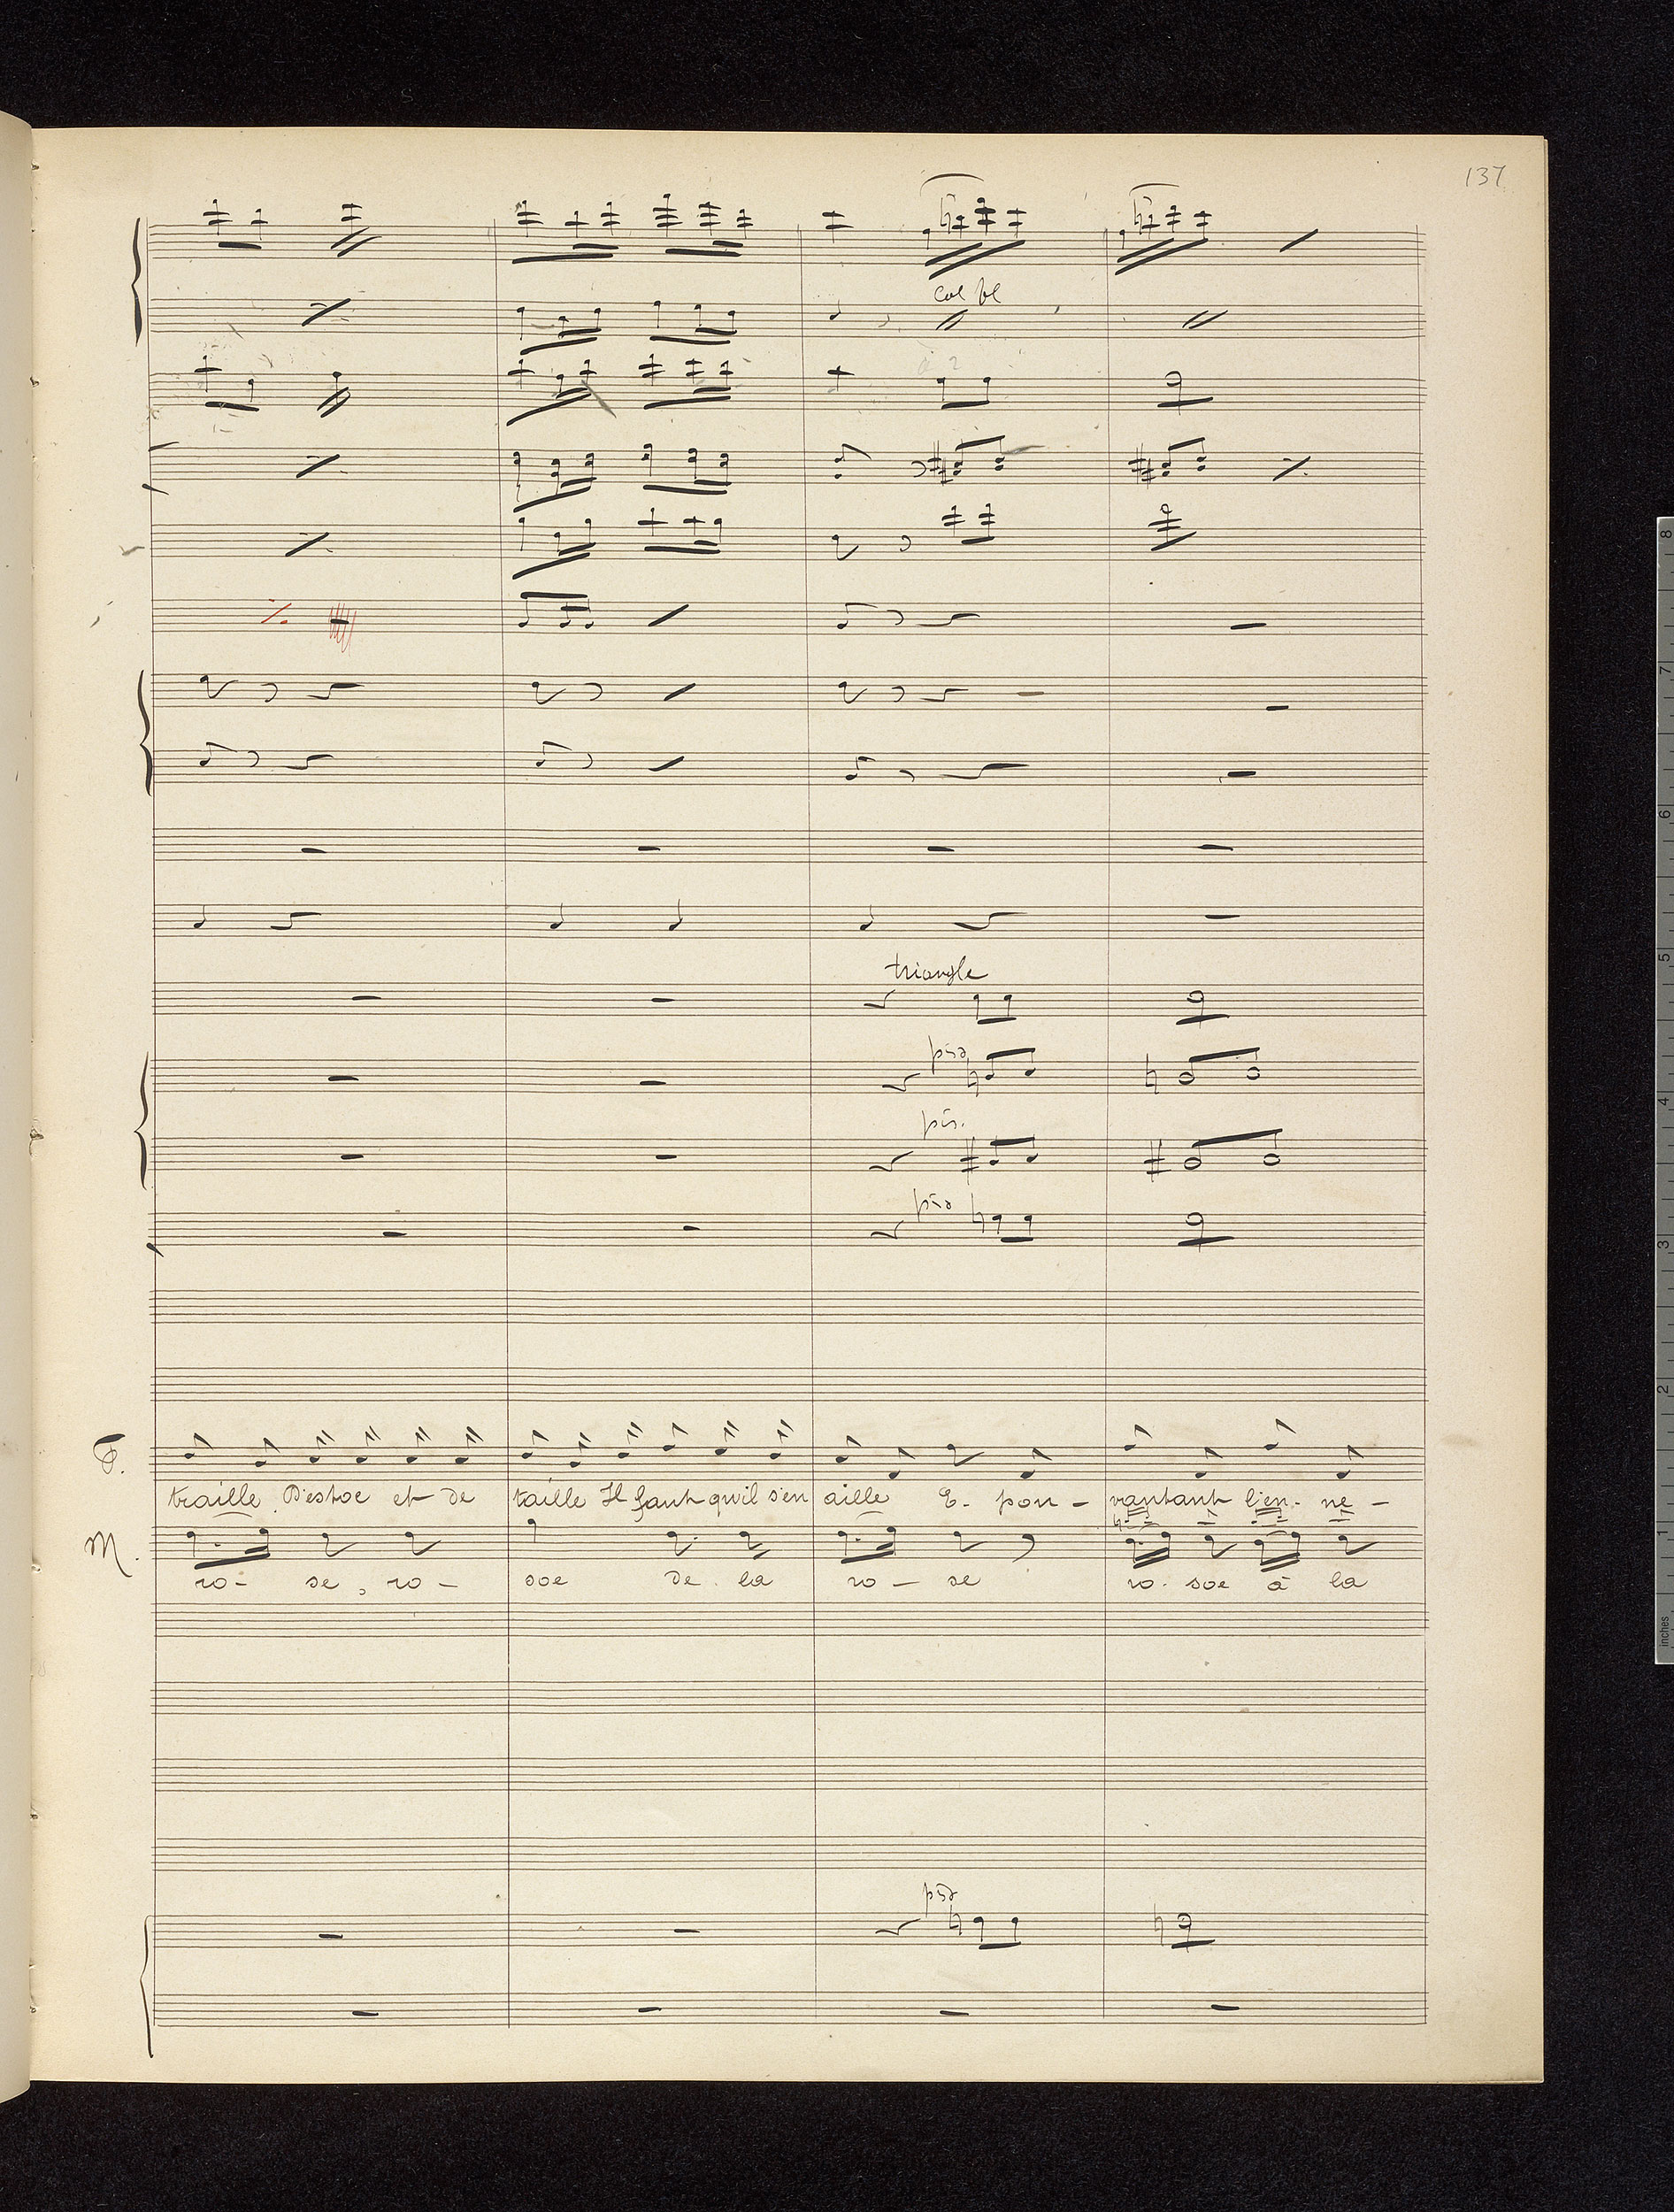 137
col fl
à 2
triangle
piz
piz.
piz
T.
traille D'estoc et de taille Il faut qu'il s'en aille E- pou- vantant l'en- ne-
M.
ro- se, ro- see de la ro- se ro- see à la
piz
8
7
6
5
4
3
2
1
inches